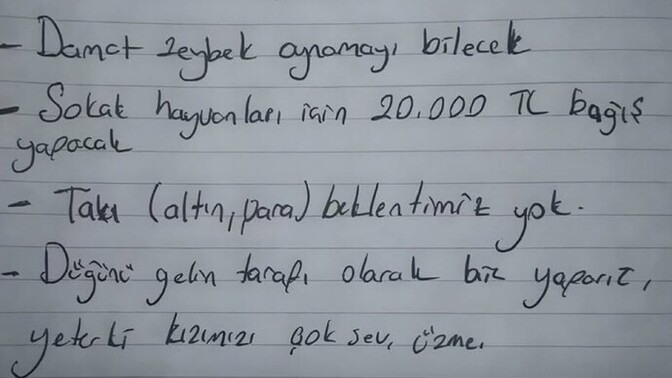 - Damat zeybek oynamayı bilecek
- Sokak hayvanları için 20.000 TL bağış
yapacak
- Takı (altın, para) beklentimiz yok.
- Düğünü gelin tarafı olarak biz yaparız,
yeterki kızımızı çok sev, üzme.